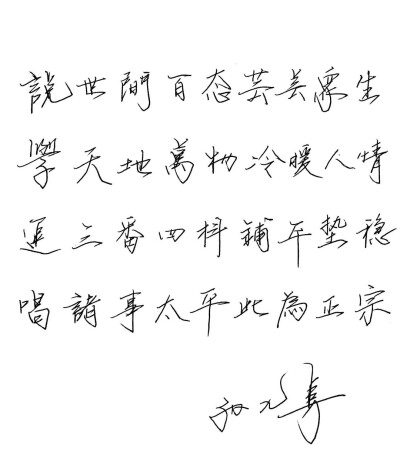 說世間百态芸芸眾生
學天地萬物冷暖人情
逗三番四抖補平垫稳
唱諸事太平此為正宗
孙九